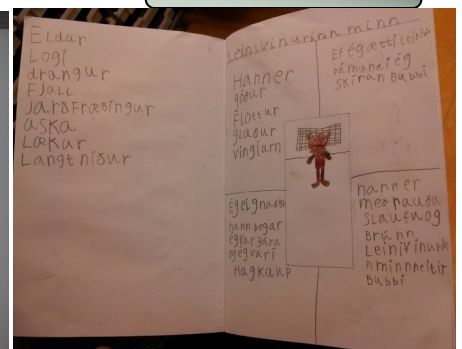 Eldur
Logi
drangur
Fjall
jarðfræðingur
aska
Lækur
Langt niður
Leinivinurinn minn
Hanner
góður
Flottur
glaður
vingiarn
Ef égætti Leiniv
þámundi ég
skiran Bubbi
Égeignaðs
hannþegar
égvar5ára
ogégvarí
Hagkaup
hanner
með rauða
Slaufuog
Brúnn
Leinivinurin
nminnheitir
Bubbi